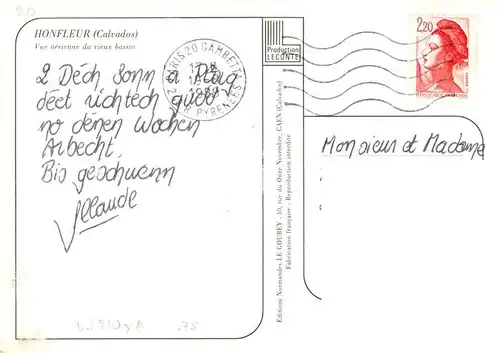 20
HONFLEUR (Calvados)
Vue aérienne du vieux bassin
2 Déch Sonn a Plag
deet richtech gudd
no dénen Wochen
Arbecht.
Bis geschwenn
Claude
PARIS 20 GAMBETTA
PYRENEES
Production
LECONTE
2,20
Monsieur et Madame
Éditions Normandes LE GOUBEY - 10, rue du Onze Novembre, CAEN (Calvados)
Fabrication française - Reproduction interdite